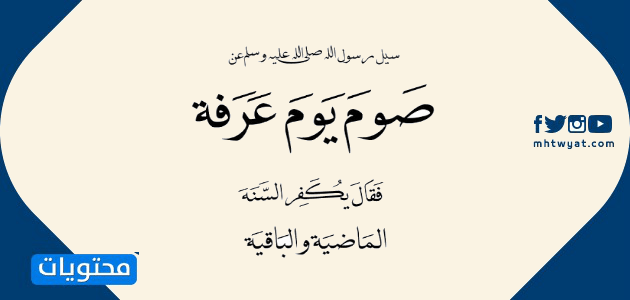 سيل رسول الله صلى الله عليه وسلم عن
صَومَ يَومَ عَرَفة
فَقَالَ يكَفِر السَّنَهَ
المَاضيَة والبَاقيَة
mhtwyat.com
محتويات